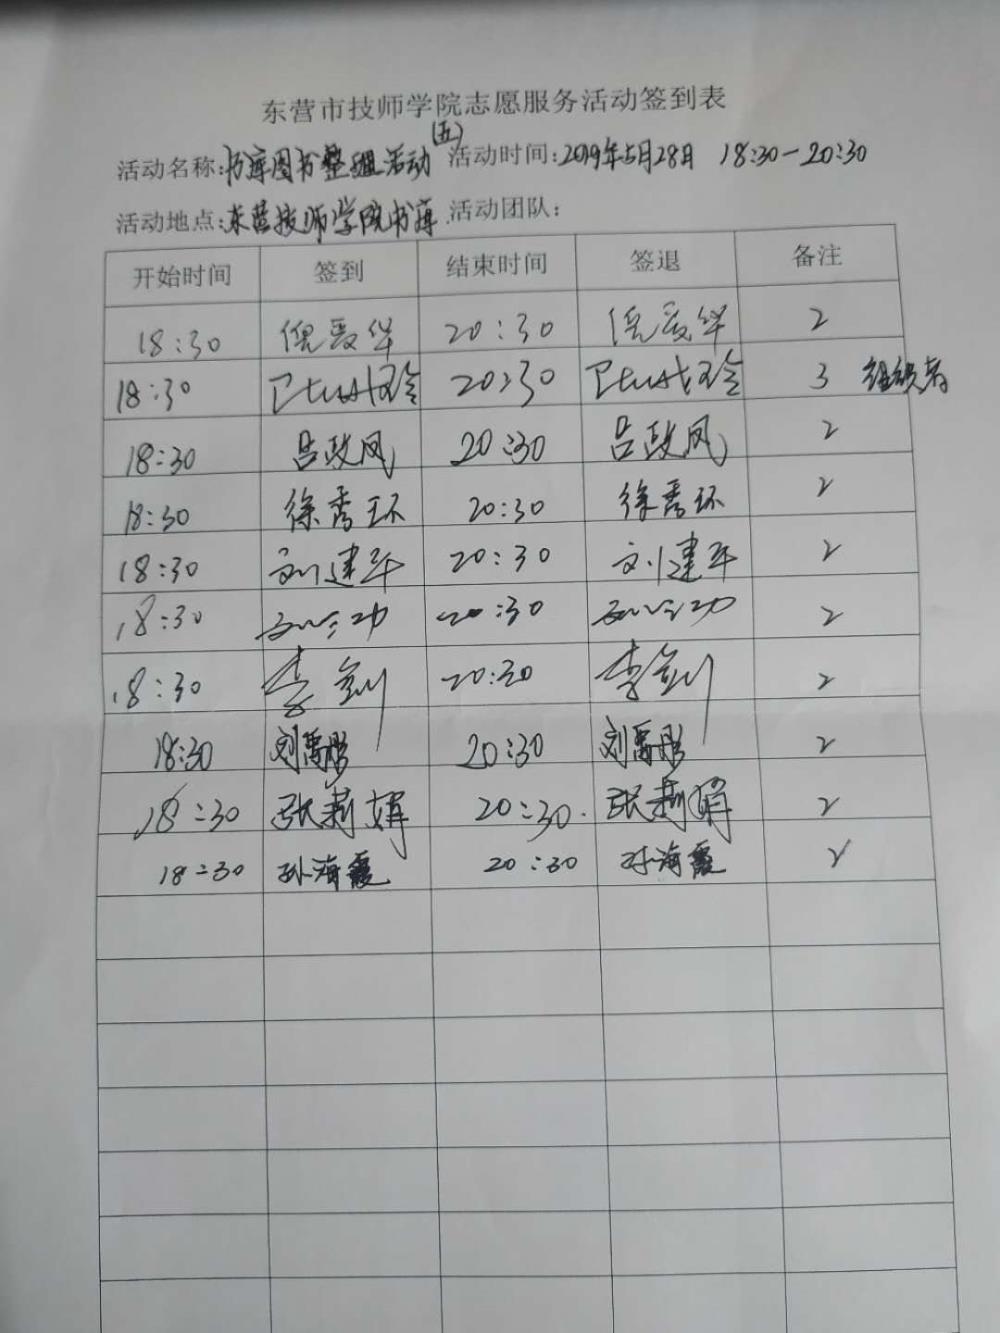 东营市技师学院志愿服务活动签到表
(五)
活动名称:书库图书整理活动 活动时间:2019年5月28日 18:30-20:30
活动地点:东营技师学院书库 活动团队:
开始时间 签到 结束时间 签退 备注
18:30 倪爱华 20:30 倪爱华 2
18:30 20:30 3 组织者
18:30 吕政凤 20:30 吕政凤 2
18:30 徐秀环 20:30 徐秀环 2
18:30 刘建军 20:30 刘建军 2
18:30 20:30 2
18:30 李剑 20:30 李剑 2
18:30 刘禹彤 20:30 刘禹彤 2
18:30 张莉娟 20:30. 张莉娟 2
18:30 孙海霞 20:30 孙海霞 2